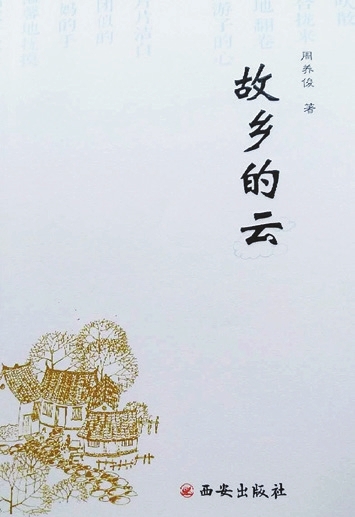 故乡的云
周养俊 著
西安出版社